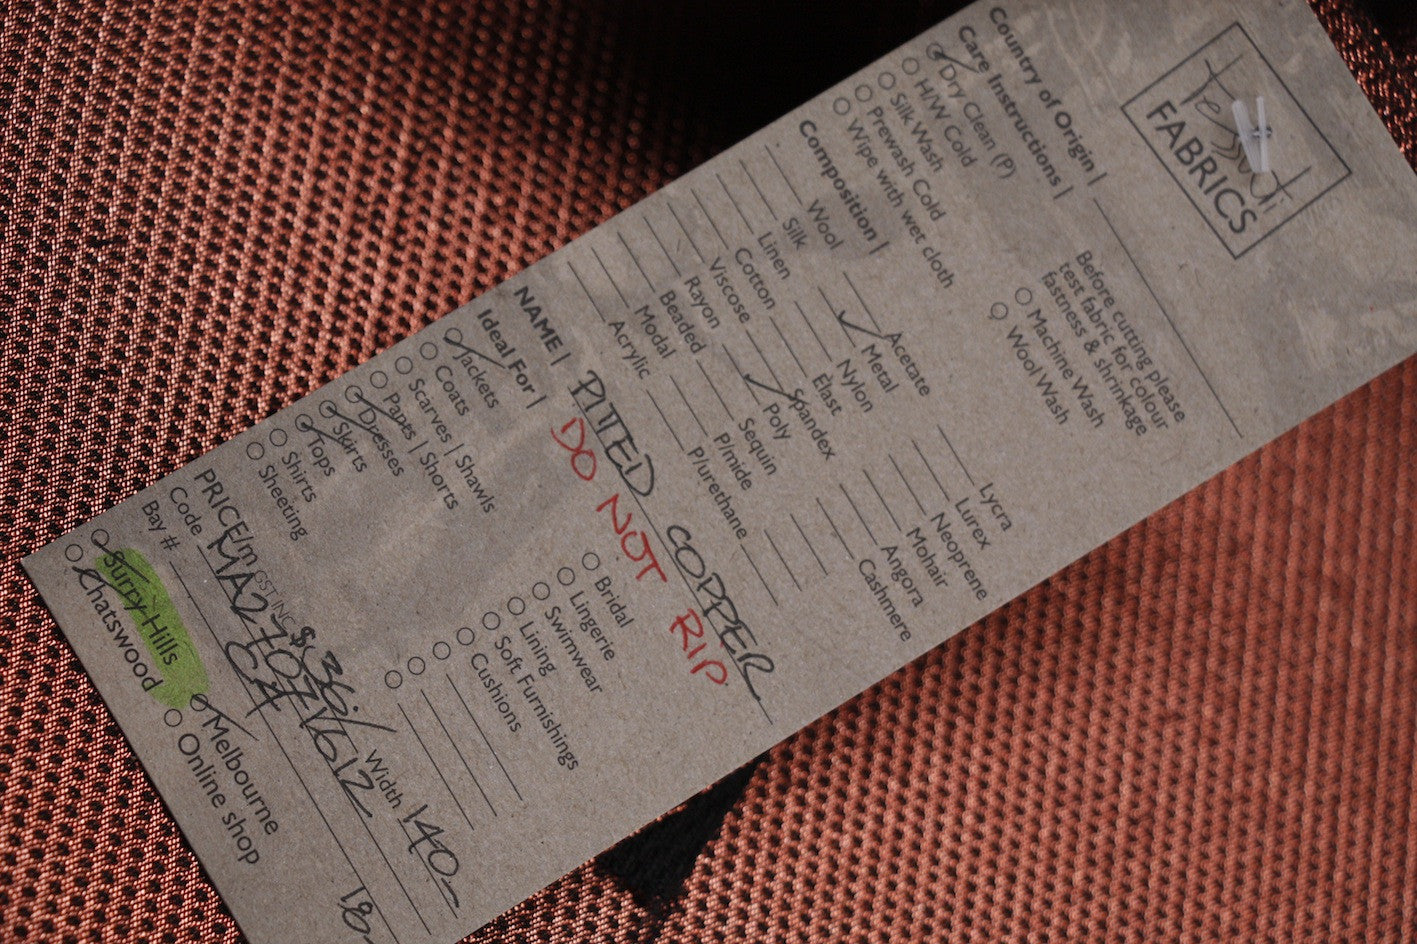 Tessuti
FABRICS
Country of Origin |
Care Instructions |
Dry Clean (P)
H/W Cold
Silk Wash
Prewash Cold
Wipe with wet cloth
Before cutting please
test fabric for colour
fastness & shrinkage
Machine Wash
Wool Wash
Composition |
Wool
Silk
Linen
Cotton
Viscose
Rayon
Beaded
Modal
Acrylic
Acetate
Metal
Nylon
Elast
Spandex
Poly
Sequin
P/mide
P/urethane
Lycra
Lurex
Neoprene
Mohair
Angora
Cashmere
NAME | PITTED COPPER
DO NOT RIP
Ideal For |
Jackets
Coats
Scarves | Shawls
Pants | Shorts
Dresses
Skirts
Tops
Shirts
Sheeting
Bridal
Lingerie
Swimwear
Lining
Soft Furnishings
Cushions
PRICE/m GST INC $ 36/ Width 140
Code
Bay #
Surry Hills
Chatswood
Melbourne
Online shop